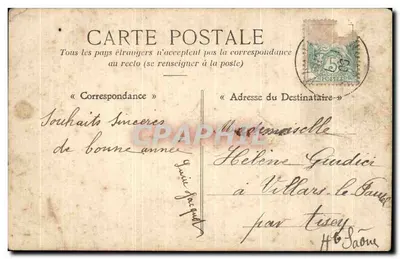 CARTE POSTALE
Tous les pays étrangers n'acceptent pas la correspondance
au recto (se renseigner à la poste)
« Correspondance »
« Adresse du Destinataire »
Souhaits sincères
de bonne année
Mademoiselle
Hélène Giudici
à Villars-le-Pautel
par Jussey
Hte Saône
CPAPHIL
5